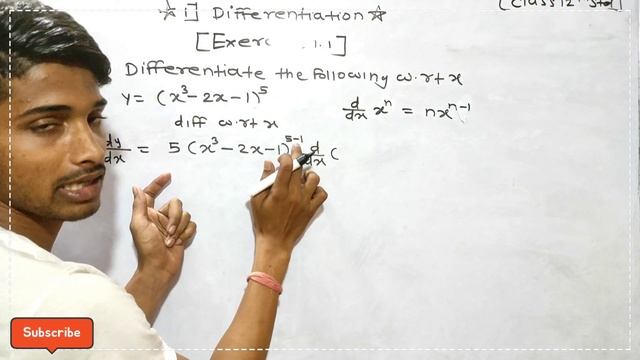 ☆ 1] Differentiation ☆
[Class 12th Std]
[Exer 1.1]
Differentiate the following w.r.t x
y = (x³ - 2x - 1)⁵
d/dx xⁿ = nxⁿ⁻¹
diff w.r.t x
dy/dx = 5 (x³ - 2x - 1)⁵⁻¹ d/dx (
Subscribe